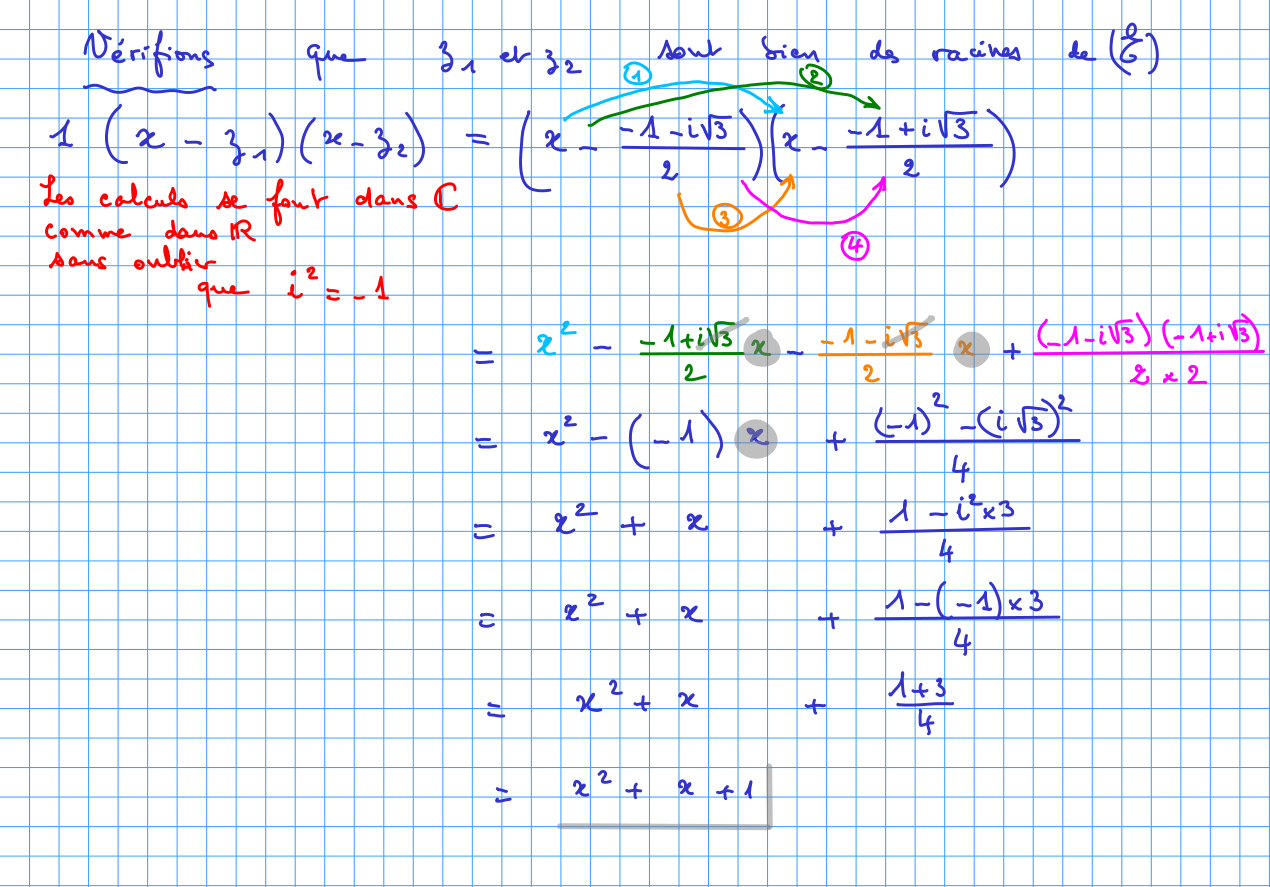 Vérifions que z₁ et z₂ sont bien des racines de (E)
1 (x - z₁)(x - z₂) = (x - (-1 - i√3)/2)(x - (-1 + i√3)/2)
① ② ③ ④
Les calculs se font dans ℂ
comme dans ℝ
sans oublier
que i² = -1
= x² - (-1 + i√3)/2 x - (-1 - i√3)/2 x + (-1 - i√3)(-1 + i√3)/(2 × 2)
= x² - (-1) x + ((-1)² - (i√3)²)/4
= x² + x + (1 - i² × 3)/4
= x² + x + (1 - (-1) × 3)/4
= x² + x + (1 + 3)/4
= x² + x + 1